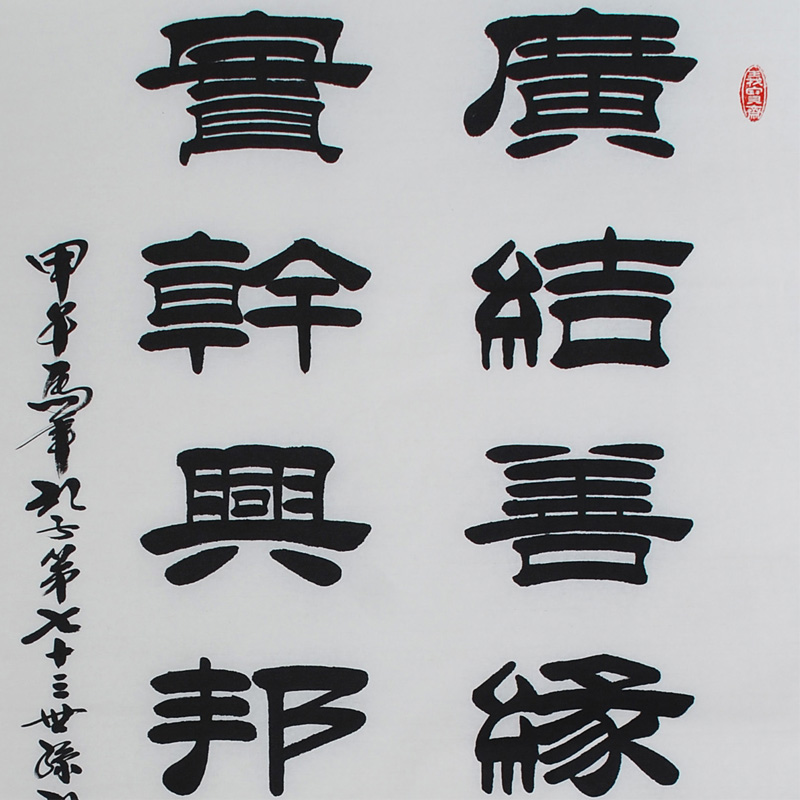 廣結善緣
實幹興邦
甲午馬年孔子第七十三世孫